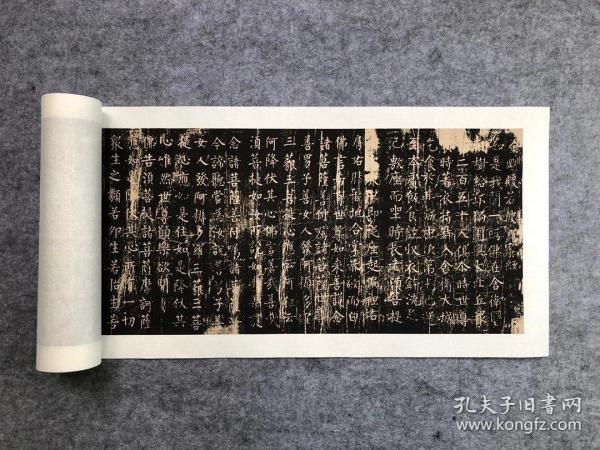 般若波
如是我聞一時佛在舍衛國
樹給孤獨園與大比丘衆
二百五十人俱尒時世尊
時著衣持鉢入舍衛大城
乞食於其城中次第乞已還
至本處飯食訖收衣鉢洗足
已敷座而坐時長老須菩提
衆中即從座起偏袒右
肩右膝著地合掌恭敬而白
佛言希有世尊如來善護念
諸菩薩善付囑諸菩薩世尊
善男子善女人發阿耨多羅
三藐三菩提心應云何住云
何降伏其心佛言善哉善哉
須菩提如汝所說如來善護
念諸菩薩善付囑諸菩薩汝
今諦聽當為汝說善男子善
女人發阿耨多羅三藐三菩
提心應如是住如是降伏其
心唯然世尊願樂欲聞
佛告須菩提諸菩薩摩訶薩
應如是降伏其心所有一切
衆生之類若卵生若胎生若
孔夫子旧书网
www.kongfz.com